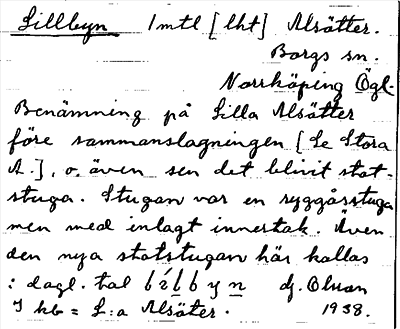 Lillbyn 1mtl [lht] Alsätter.
Borgs sn.
Norrköping Ögl.
Benämning på Lilla Alsätter
före sammanslagningen [Se Stora
A.], o. även sen det blivit stat-
stuga. Stugan var en ryggåsstuga
men med inlagt innertak. Även
den nya statstugan här kallas
i dagl. tal
I kb = L:a Alsäter. 1938.